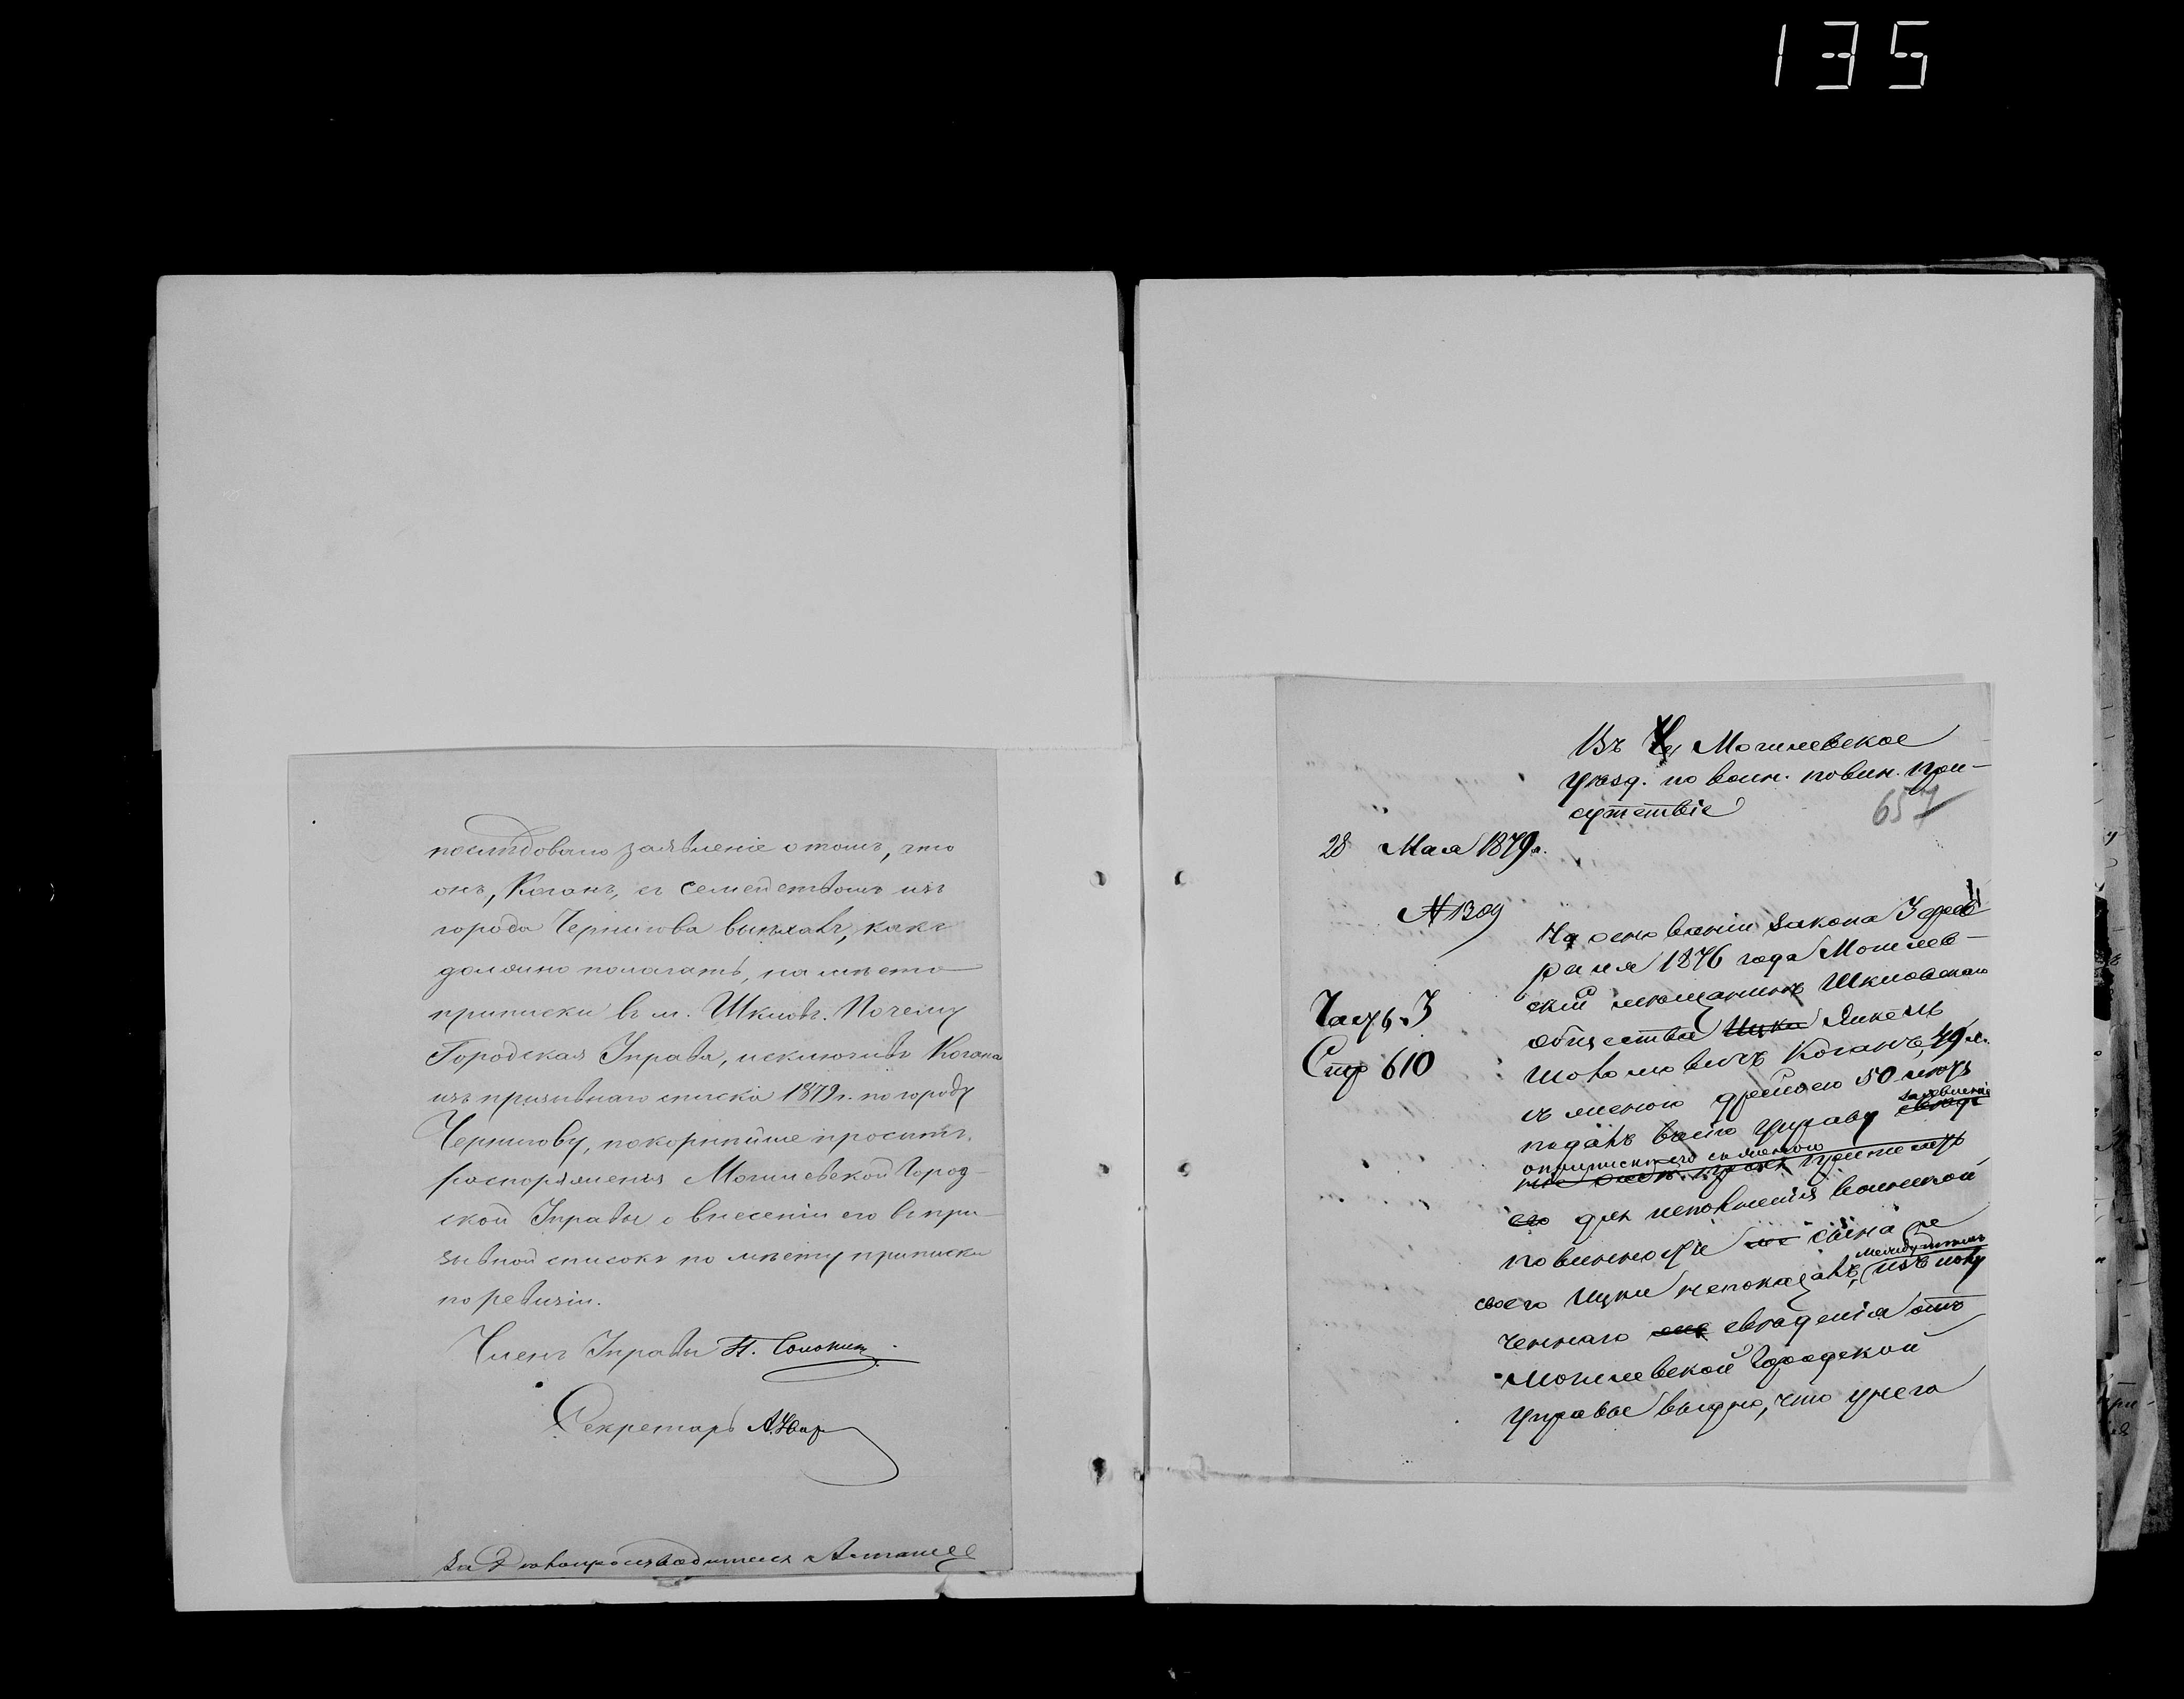 135
послѣдовало заявленіе о томъ, что
онъ, Коганъ, съ семействомъ изъ
города Чернигова выѣхавъ, какъ
должно полагать, на мѣсто
приписки въ м. Шкловъ. Почему
Городская Управа, исключивъ Когана
изъ призывнаго списка 1879 г. по городу
Чернигову, покорнѣйше проситъ
распоряженія Могилевской Город-
ской Управы о внесеніи его въ при-
зывной списокъ по мѣсту приписки
по ревизіи.
Членъ Управы П.
Секретарь А.
За Дѣлопроизводителя
Въ Могилевское
уѣзд. по воин. повин. при-
сутствіе
657
28 Мая 1879 г.
№ 1309
На основаніи закона 3 фев
раля 1876 года Могилев-
скій мѣщанинъ Шкловскаго
Часть 3
общества Ицка Янкель
Стр 610
Коганъ, 49 л.
съ женою 50 лѣтъ
подавъ въ сію управу заявленіе
о припискѣ его
его для исполненія воинской
повинности сына
своего Ицки непоказавъ, между тѣмъ изъ полу
ченнаго свѣденія отъ
Могилевской Городской
Управы видно, что у него